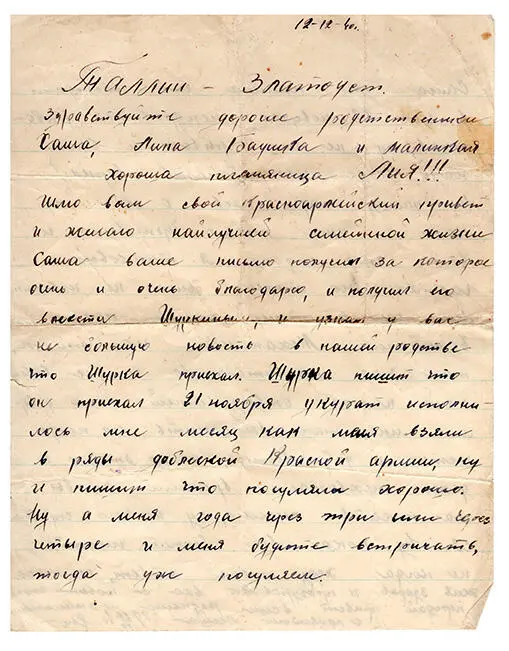 12-12-40г.
Таллин – Златоуст.
Здравствуйте дорогие родственники
Саша, Лина и малинкая
хороша племяница Лия!!!
Шлю вам свой Красноармейский привет
и желаю найлучшей семейной жизни
Саша ваше письмо получил за которое
очень и очень благодарю, и получил его
вместе Шуркиным, и узнал у вас
не большую новость в нашей родстве
что Шурка приехал. Шурка пишит что
он приехал 21 ноября укурат исполни-
лось мне месяц как меня взяли
в ряды доблеской Красной армии, ну
и пишит что погуляли хорошо.
Ну а меня года через три или через
четыре и меня будите встричать,
тогда уж погуляем.